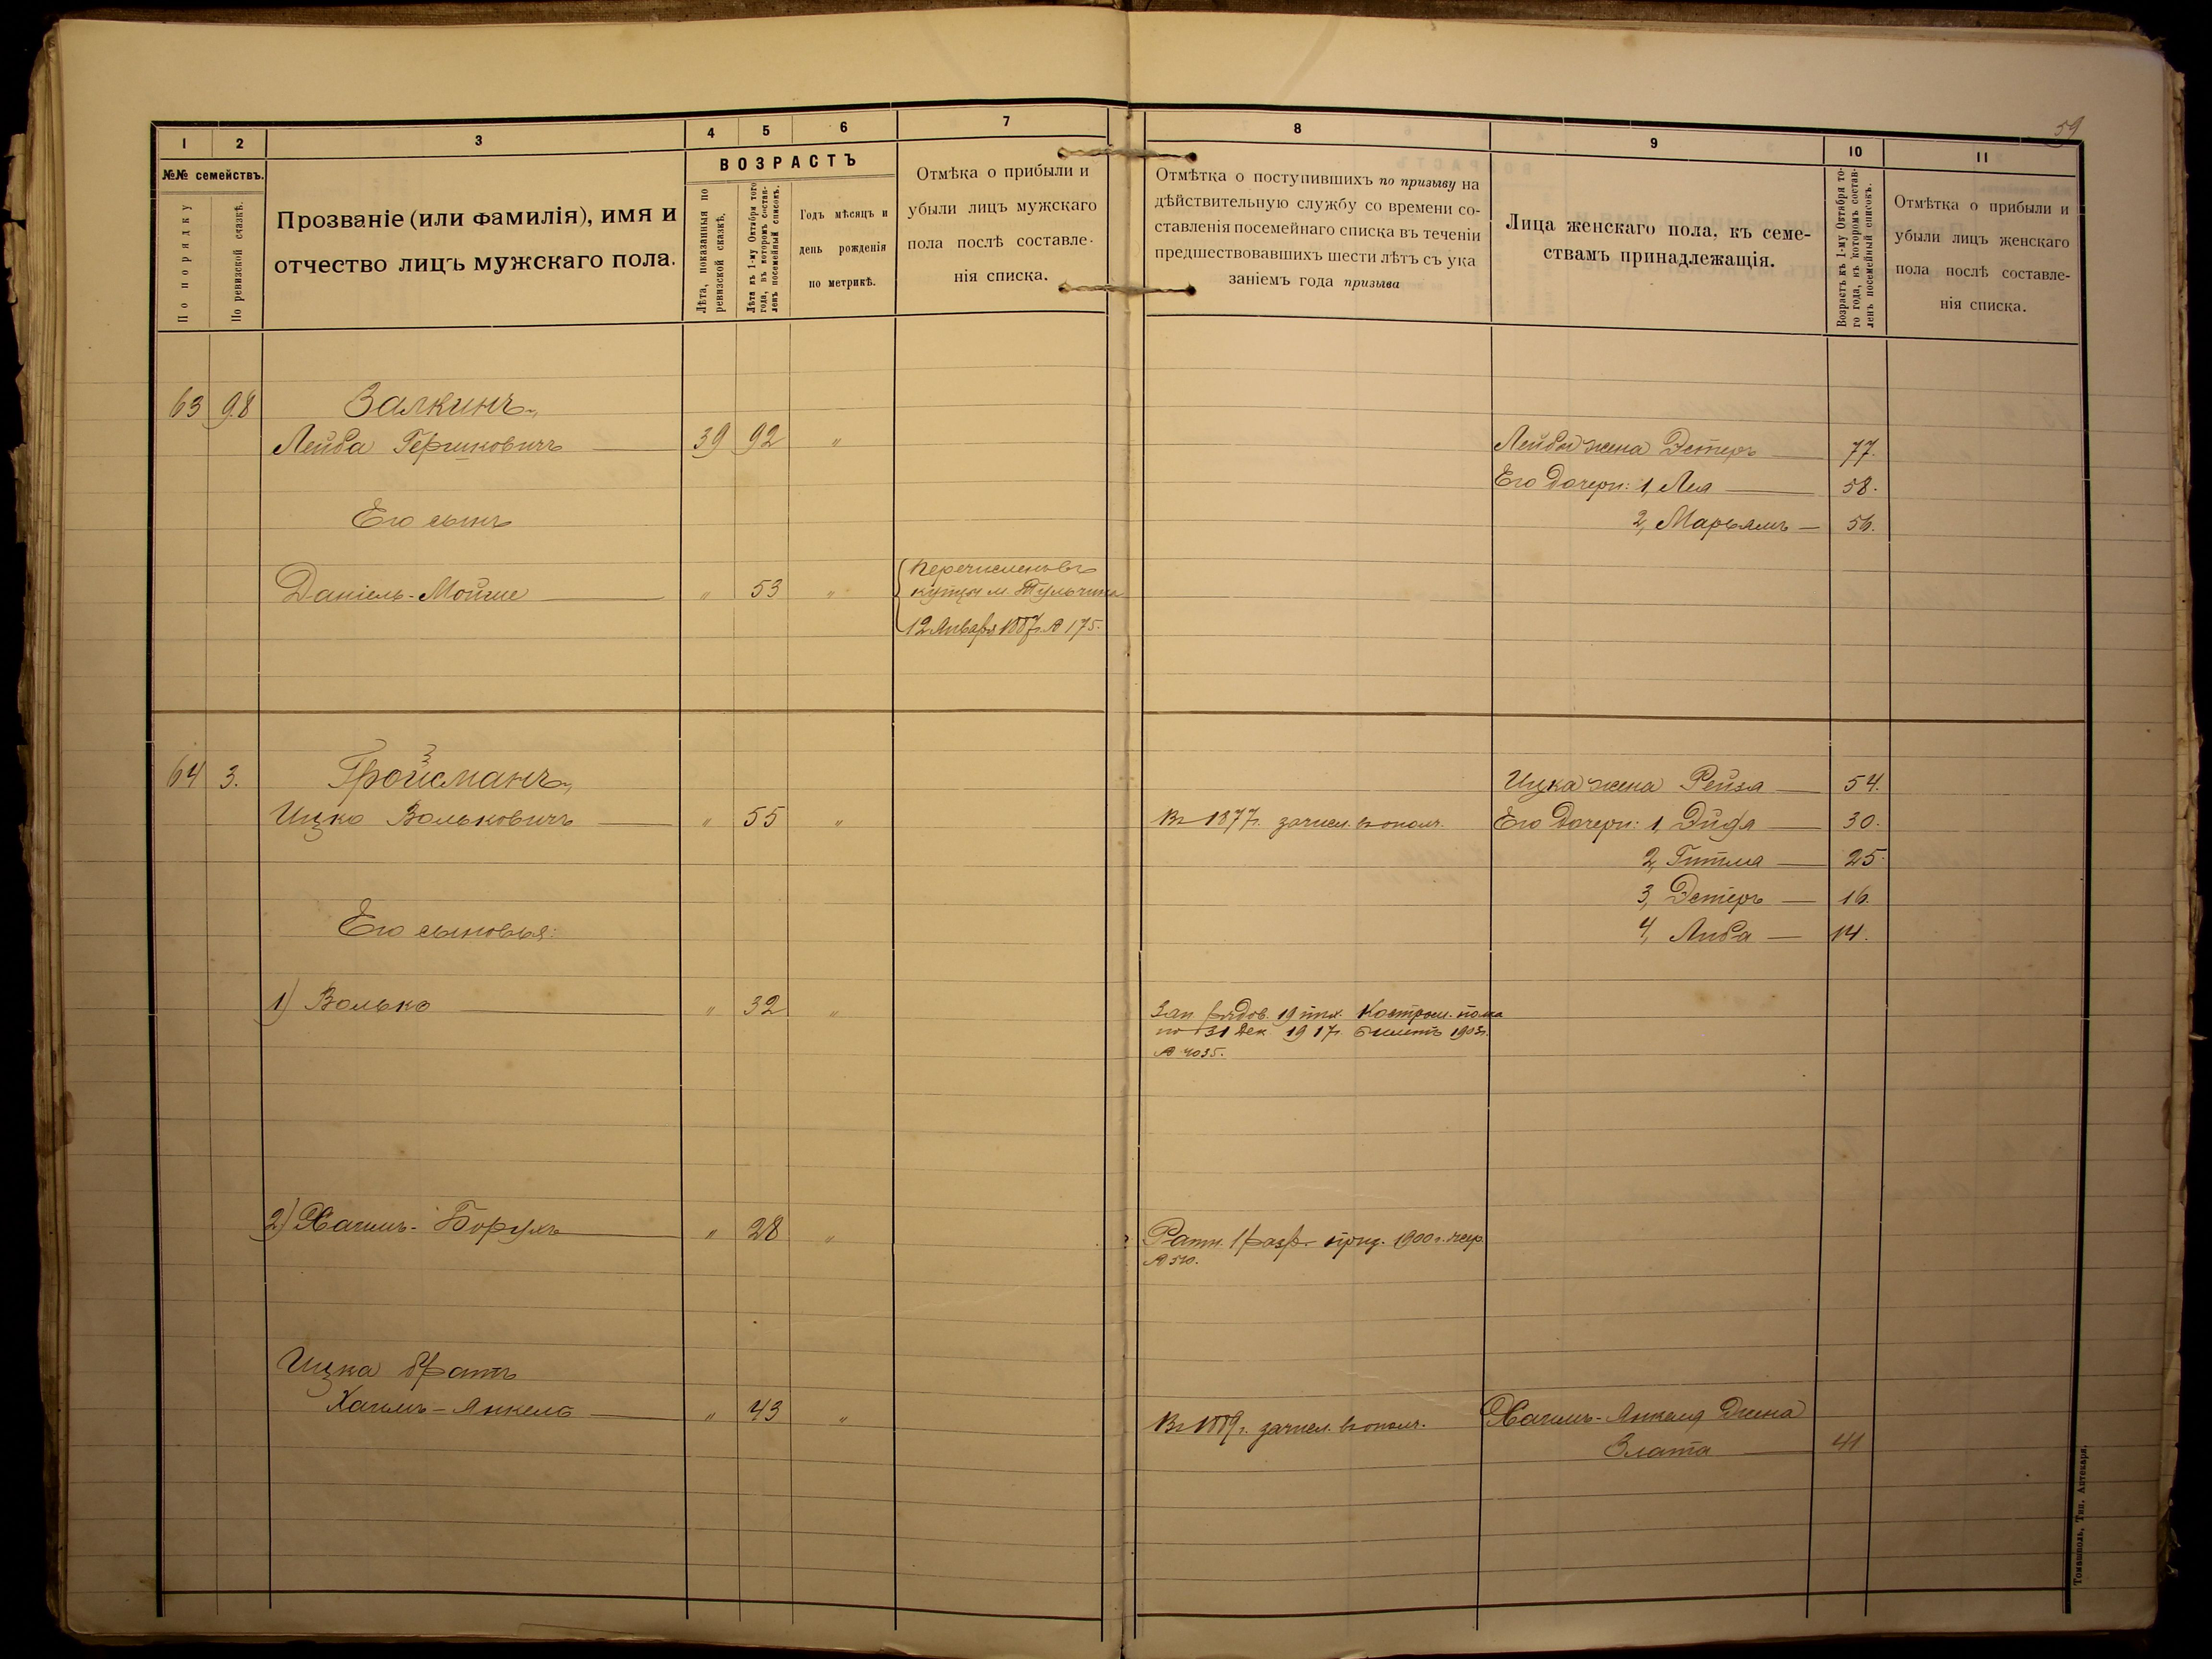 59
1 2 3 4 5 6 7
№№ семействъ.
По порядку
По ревизской сказкѣ.
Прозваніе (или фамилія), имя и
отчество лицъ мужскаго пола.
ВОЗРАСТЪ
Лѣта, показанныя по
ревизской сказкѣ.
Лѣта къ 1-му Октября того
года, въ которомъ состав-
ленъ посемейный списокъ.
Годъ мѣсяцъ и
день рожденія
по метрикѣ.
Отмѣка о прибыли и
убыли лицъ мужскаго
пола послѣ составле-
нія списка.
63 98 Залкинъ
Лейба Гершковичъ 39 92 "
Его сынъ
Даніель-Мойше " 53 "
Перечисленъ въ
купцы м. Тульчина
12 Января 1887г. № 175.
64 3. Гройсманъ
з
Ицко Вольковичъ " 55 "
Его сыновья:
1) Волько " 32 "
2) Хаимъ-Борухъ " 28 "
Ицка братъ
Хаимъ-Янкель " 43 "
8 9 10 11
Отмѣтка о поступившихъ по призыву на
дѣйствительную службу со времени со-
ставленія посемейнаго списка въ теченіи
предшествовавшихъ шести лѣтъ съ ука
заніемъ года призыва
Лица женскаго пола, къ семе-
ствамъ принадлежащія.
Возрастъ къ 1-му Октября то-
го года, въ которомъ состав-
ленъ посемейный списокъ.
Отмѣтка о прибыли и
убыли лицъ женскаго
пола послѣ составле-
нія списка.
Лейбы жена Эстеръ 77.
Его дочери: 1, Лея 58.
2, Марьямъ 56.
Ицка жена Рейзя 54.
Въ 1877г. зачисл. въ ополч. Его дочери: 1, Эйдя 30.
2, Гитля 25.
3, Эстеръ 16.
4, Либа 14.
Зап рядов. 19 пѣх. Костром. полка
по 31 Дек 1917г. билетъ 1903г.
№ 4035.
Ратн. 1 разр. приз. 1900г. жер.
№ 510.
Въ 1889г. зачисл. въ ополч. Хаимъ-Янкеля жена
Злата 41
Томашполь, Тип. Аптекаря.